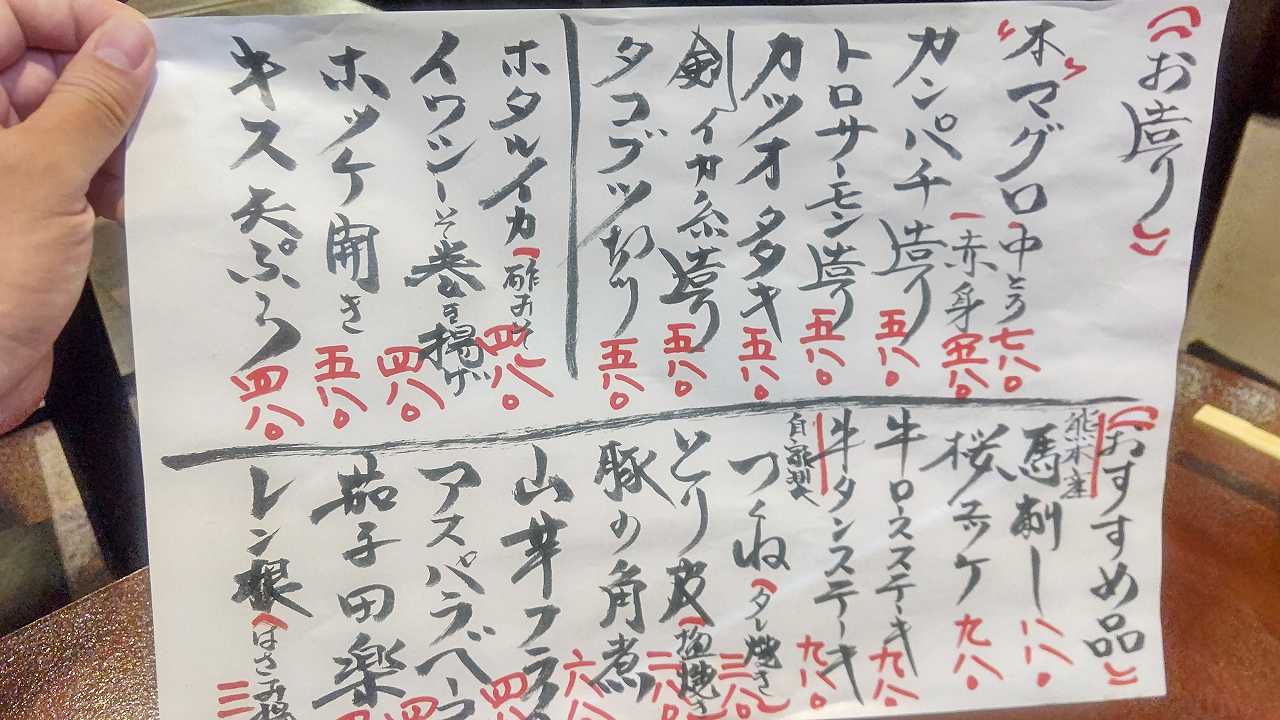 お造り
本マグロ 中とろ 七八〇
赤身 五八〇
カンパチ造り 五八〇
トロサーモン造り 五八〇
カツオタタキ 五八〇
剣イカ糸造り 五八〇
タコブツ切り 五八〇
ホタルイカ 酢みそ 四八〇
イワシしそ巻き揚げ 四八〇
ホッケ開き 五八〇
キス天ぷら 四八〇
おすすめ品
熊本産
馬刺し 八八〇
桜ユッケ 九八〇
牛ロースステーキ 九八〇
牛タンステーキ 九八〇
自家製
つくね タレ焼き 三八〇
とり皮 塩焼き 二八〇
豚の角煮 六八
山芋フラ 四八
アスパラベーコ 四
茄子田楽
レン根 はさみ揚 三